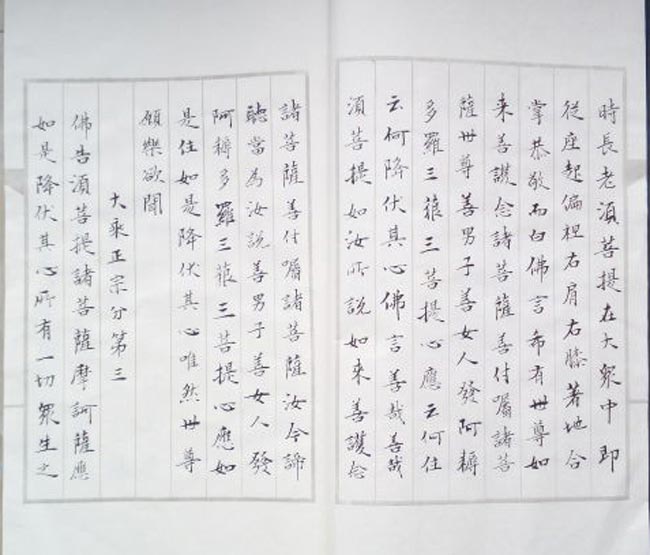 時長老湏菩提在大衆中即
從座起偏袒右肩右膝著地合
掌恭敬而白佛言希有世尊如
来善護念諸菩薩善付囑諸菩
薩世尊善男子善女人發阿耨
多羅三藐三菩提心應云何住
云何降伏其心佛言善哉善哉
湏菩提如汝所說如来善護念
諸菩薩善付囑諸菩薩汝今諦
聽當為汝說善男子善女人發
阿耨多羅三藐三菩提心應如
是住如是降伏其心唯然世尊
願樂欲聞
大乘正宗分第三
佛告湏菩提諸菩薩摩訶薩應
如是降伏其心所有一切衆生之